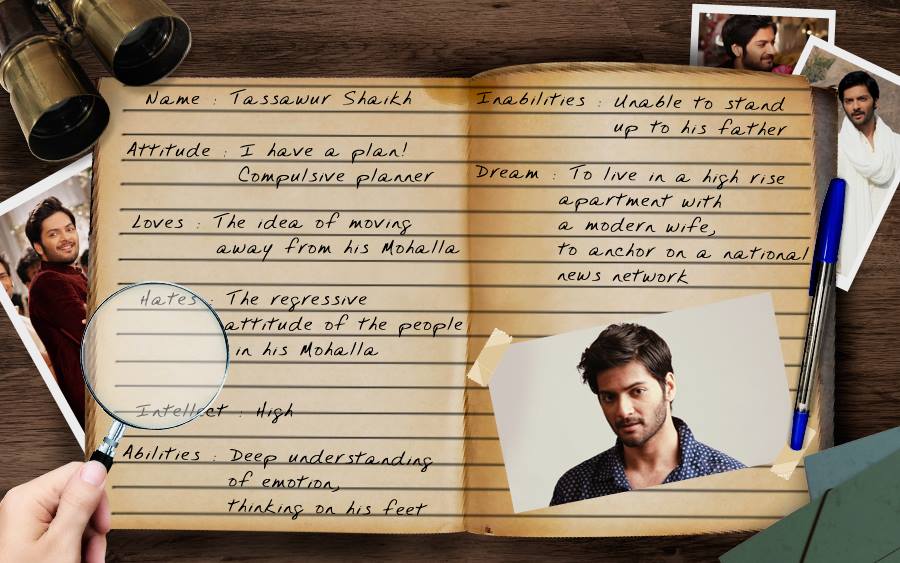 Name : Tassawur Shaikh
Attitude : I have a plan!
Compulsive planner
Loves : The idea of moving
away from his Mohalla
Hates : The regressive
attitude of the people
in his Mohalla
Intellect : High
Abilities : Deep understanding
of emotion,
thinking on his feet
Inabilities : Unable to stand
up to his father
Dream : To live in a high rise
apartment with
a modern wife,
to anchor on a national
news network